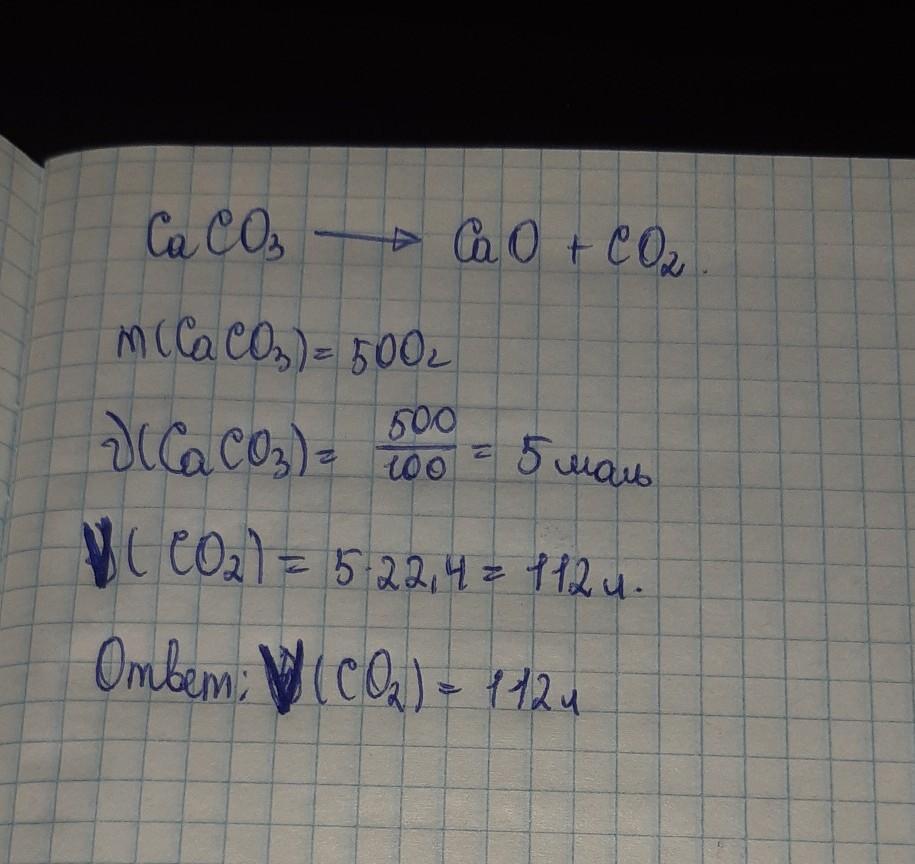 CaCO₃ → CaO + CO₂.
m(CaCO₃) = 500г
ν(CaCO₃) = 500/100 = 5 моль
V(CO₂) = 5·22,4 = 112 л.
Ответ: V(CO₂) = 112л